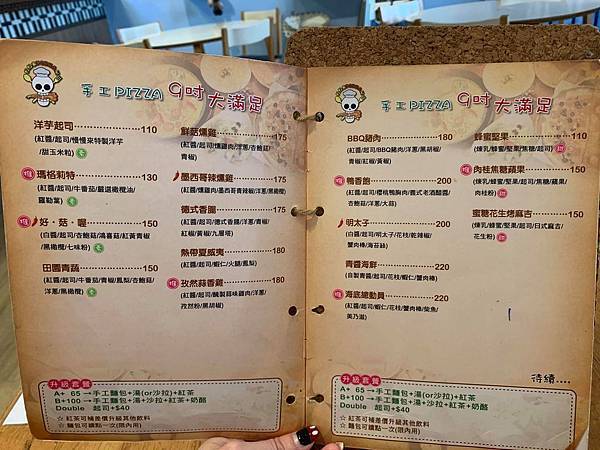 手工PIZZA 9吋大滿足
洋芋起司 110
(紅醬/起司/慢慢來特製洋芋
/甜玉米粒) 素
推 瑪格莉特 130
(紅醬/起司/牛番茄/嚴選橄欖油/
羅勒葉) 素
推 好・菇・喔 150
(白醬/起司/杏鮑菇/鴻喜菇/紅黃青椒
/黑橄欖/七味粉) 素
田園青蔬 150
(紅醬/起司/牛番茄/青椒/鳳梨/杏鮑菇/
洋蔥/黑橄欖) 素
鮮菇燻雞 175
(紅醬/起司/燻雞肉/洋蔥/杏鮑菇/
青椒)
墨西哥辣燻雞 175
(紅醬/燻雞肉/墨西哥青辣椒/洋蔥/黑橄欖)
德式香腸 175
(紅醬/起司/德式香腸/洋蔥/青椒/
紅椒/黃椒/九層塔)
熱帶夏威夷 180
(紅醬/起司/蝦仁/火腿/鳳梨)
推 孜然蒜香雞 180
(紅醬/起司/醃製蒜味雞肉/洋蔥/
孜然粉/黑胡椒)
升級套餐
A+ 65→手工麵包+湯(or沙拉)+紅茶
B+100→手工麵包+湯+沙拉+紅茶+奶酪
Double 起司+$40
☆ 紅茶可補差價升級其他飲料
☆ 麵包可續點一次(限內用)
手工PIZZA 9吋大滿足
BBQ豬肉 180
(紅醬/起司/BBQ豬肉/洋蔥/黑胡椒/
青椒/紅椒/黃椒)
推 鴨香飽 200
(紅醬/起司/櫻桃鴨胸肉/義式老酒醋醬/
杏鮑菇/洋蔥/大蒜)
明太子 200
(白醬/起司/明太子/花枝/乾辣椒/
蟹肉棒/海苔絲)
青醬海鮮 220
(自製青醬/起司/花枝/蝦仁/蟹肉棒)
推 海底總動員 220
(紅醬/起司/蝦仁/花枝/蟹肉棒/柴魚/
美乃滋)
蜂蜜堅果 110
(煉乳/蜂蜜/堅果/起司) 甜
推 肉桂焦糖蘋果 150
(煉乳/蜂蜜/堅果/起司/焦糖/蘋果/
肉桂粉) 甜
蜜糖花生烤麻吉 150
(煉乳/蜂蜜/堅果/起司/日式麻吉/
花生粉) 甜
待續....
升級套餐
A+ 65→手工麵包+湯(or沙拉)+紅茶
B+100→手工麵包+湯+沙拉+紅茶+奶酪
Double 起司+$40
☆ 紅茶可補差價升級其他飲料
☆ 麵包可續點一次(限內用)